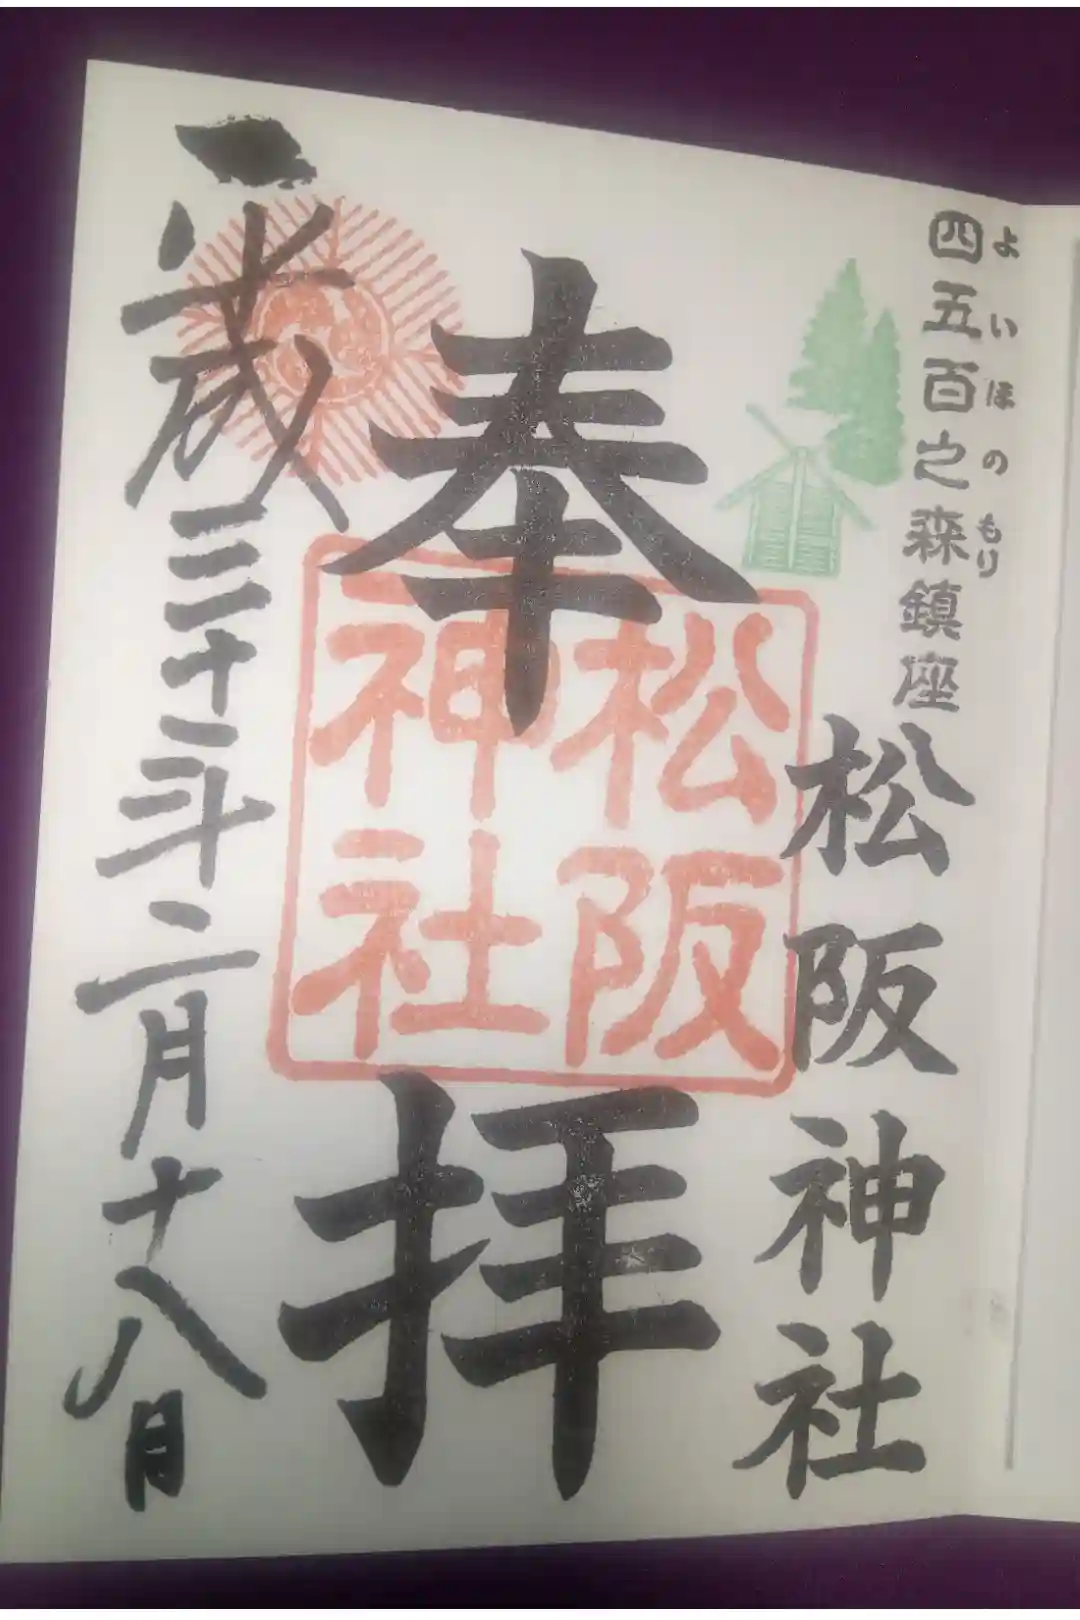 よいほのもり
四五百之森鎮座
松阪神社
奉拝
松阪
神社
平成三十一年二月十八日